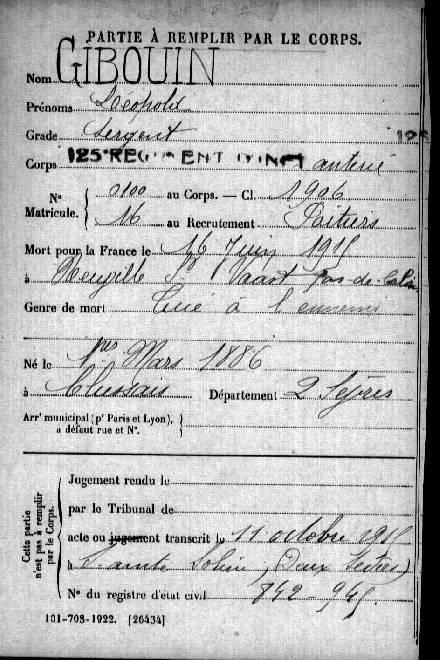 PARTIE À REMPLIR PAR LE CORPS.
Nom GIBOUIN
Prénoms Léopold
Grade Sergent
125
Corps 125e REGIMENT D'INFanterie
N° Matricule. { 0100 au Corps. — Cl. 1906
16 au Recrutement Poitiers
Mort pour la France le 16 Juin 1915
à Neuville St Vaast Pas-de-Calais
Genre de mort Tué à l'ennemi
Né le 1er Mars 1886
à Département 2 Sèvres
Arrt municipal (pr Paris et Lyon), à défaut rue et N°. }
Cette partie n'est pas à remplir par le Corps.
Jugement rendu le
par le Tribunal de
acte ou jugement transcrit le 11 octobre 1915
à Sainte Soline, (Deux Sèvres)
N° du registre d'état civil 842-945
101-708-1922. [26434]